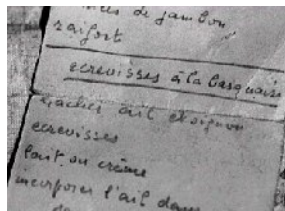 de jambon,
raifort
ecrevisses à la basquaise
hacher ail et oignon
ecrevisses
lait ou crème
incorporer l'ail dans
de